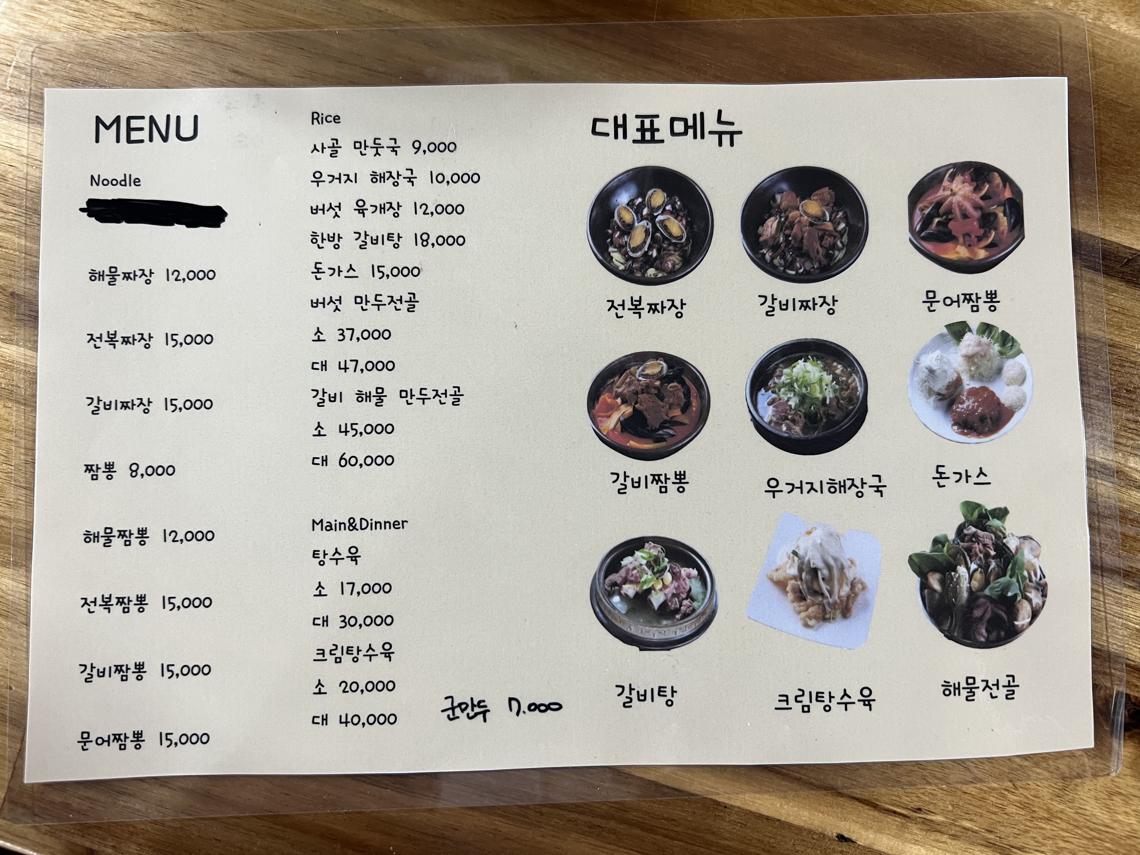 MENU
Noodle
해물짜장 12,000
전복짜장 15,000
갈비짜장 15,000
짬뽕 8,000
해물짬뽕 12,000
전복짬뽕 15,000
갈비짬뽕 15,000
문어짬뽕 15,000
Rice
사골 만둣국 9,000
우거지 해장국 10,000
버섯 육개장 12,000
한방 갈비탕 18,000
돈가스 15,000
버섯 만두전골
소 37,000
대 47,000
갈비 해물 만두전골
소 45,000
대 60,000
Main&Dinner
탕수육
소 17,000
대 30,000
크림탕수육
소 20,000
대 40,000
군만두 7.000
대표메뉴
전복짜장
갈비짜장
문어짬뽕
갈비짬뽕
우거지해장국
돈가스
갈비탕
크림탕수육
해물전골